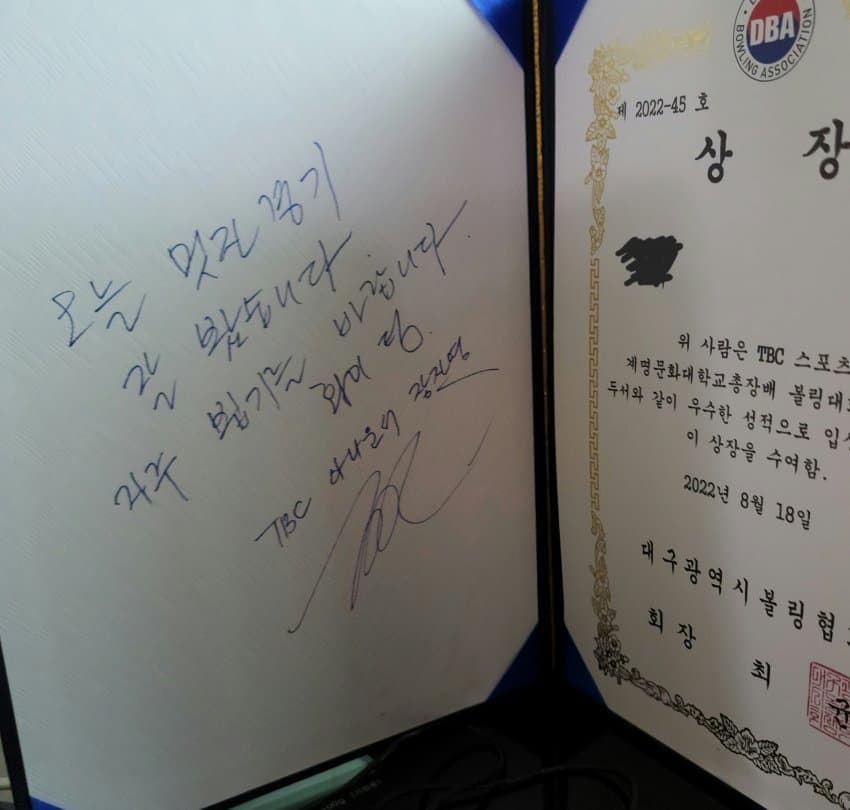 오늘 멋진 경기
잘 봤습니다.
자주 뵙기를 바랍니다.
화이팅.
TBC 아나운서
BOWLING ASSOCIATION
DBA
제 2022-45 호
상 장
위 사람은 TBC 스포츠
계명문화대학교총장배 볼링대
두서와 같이 우수한 성적으로 입
이 상장을 수여함.
2022년 8월 18일
대구광역시볼링협
회장 최